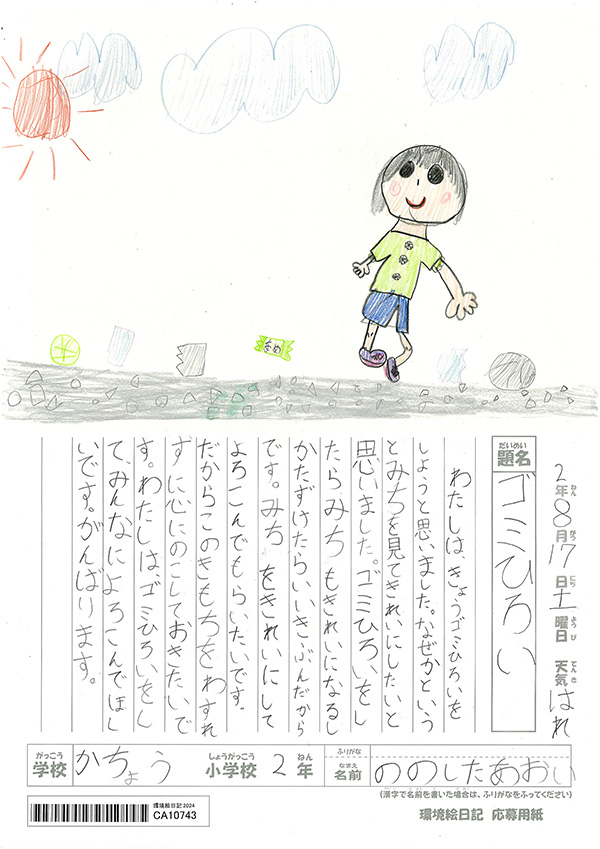 あめ
2年8月17日土曜日 天気はれ
ねん がつ にち ようび てんき
だいめい
題名
ゴミひろい
わたしは、きょうゴミひろいを
しようと思いました。なぜかという
とみちを見てきれいにしたいと
思いました。ゴミひろいをし
たらみちもきれいになるし
かたずけたらいいきぶんだから
です。みちをきれいにして
よろこんでもらいたいです。
だからこのきもちをわすれ
ずに心にのこしておきたいで
す。わたしは、ゴミひろいをし
て、みんなによろこんでほし
いです。がんばります。
がっこう
学校
かちょう
しょうがっこう
小学校
2
ねん
年
ふりがな
なまえ
名前
ののしたあおい
(漢字で名前を書いた場合は、ふりがなをふってください)
環境絵日記 2024
CA10743
環境絵日記 応募用紙